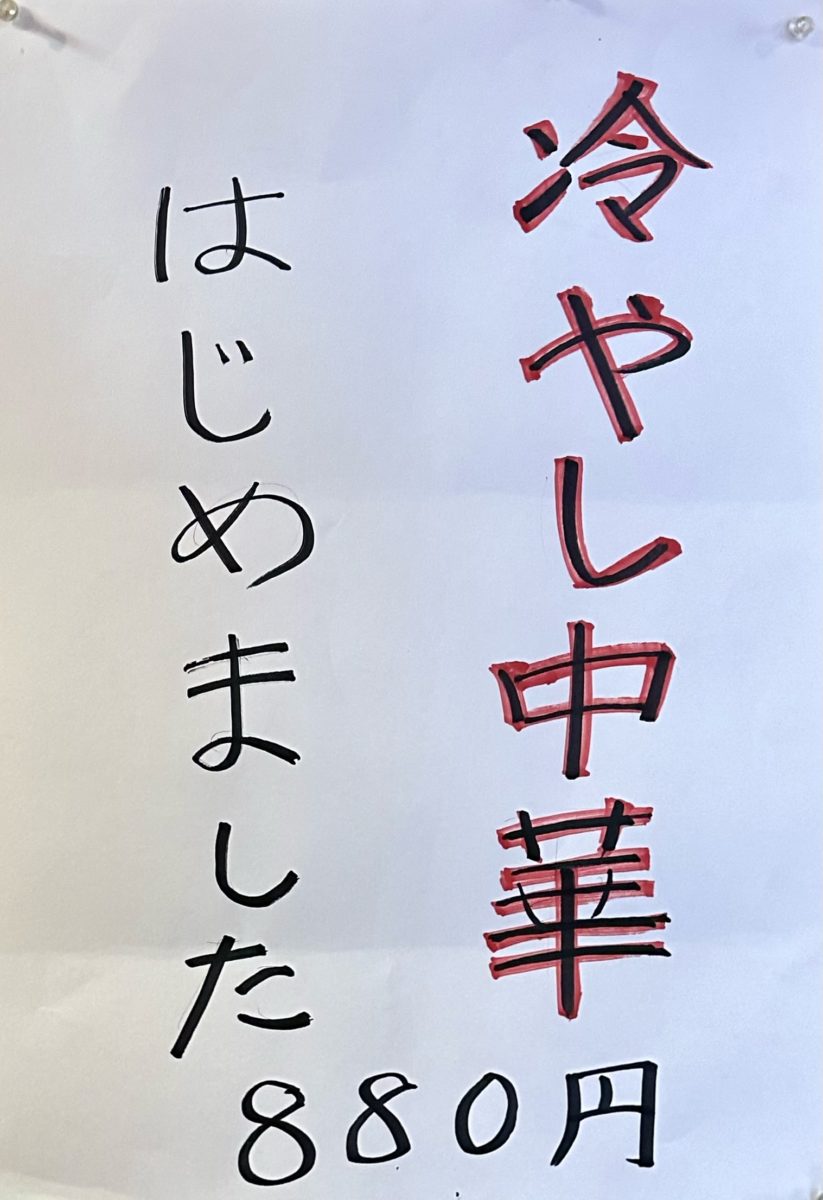 冷やし中華
はじめました
880円